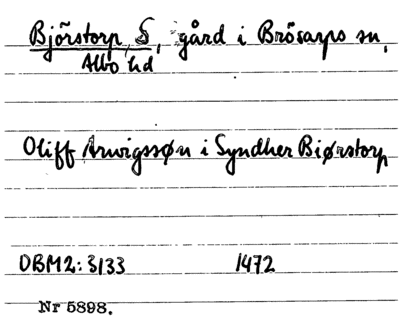 Björstorp S, gård i Brösarps sn,
Albo hd
Oliff Arwigssøn i Syndher Biørstorp
DBM2: 3133 1472
Nr 5898.